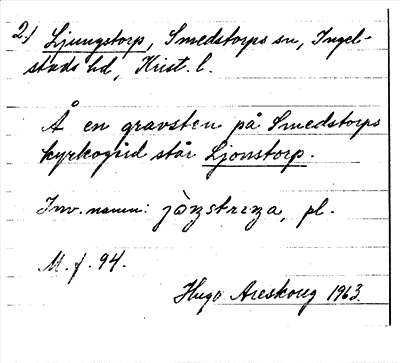 2.) Ljungstorp, Smedstorps sn, Ingel-
stads hd, Krist. l.
Å en gravsten på Smedstorps
kyrkogård står Ljonstorp.
Inv. namn: , pl.
M. f. 94.
Hugo Areskoug 1963.